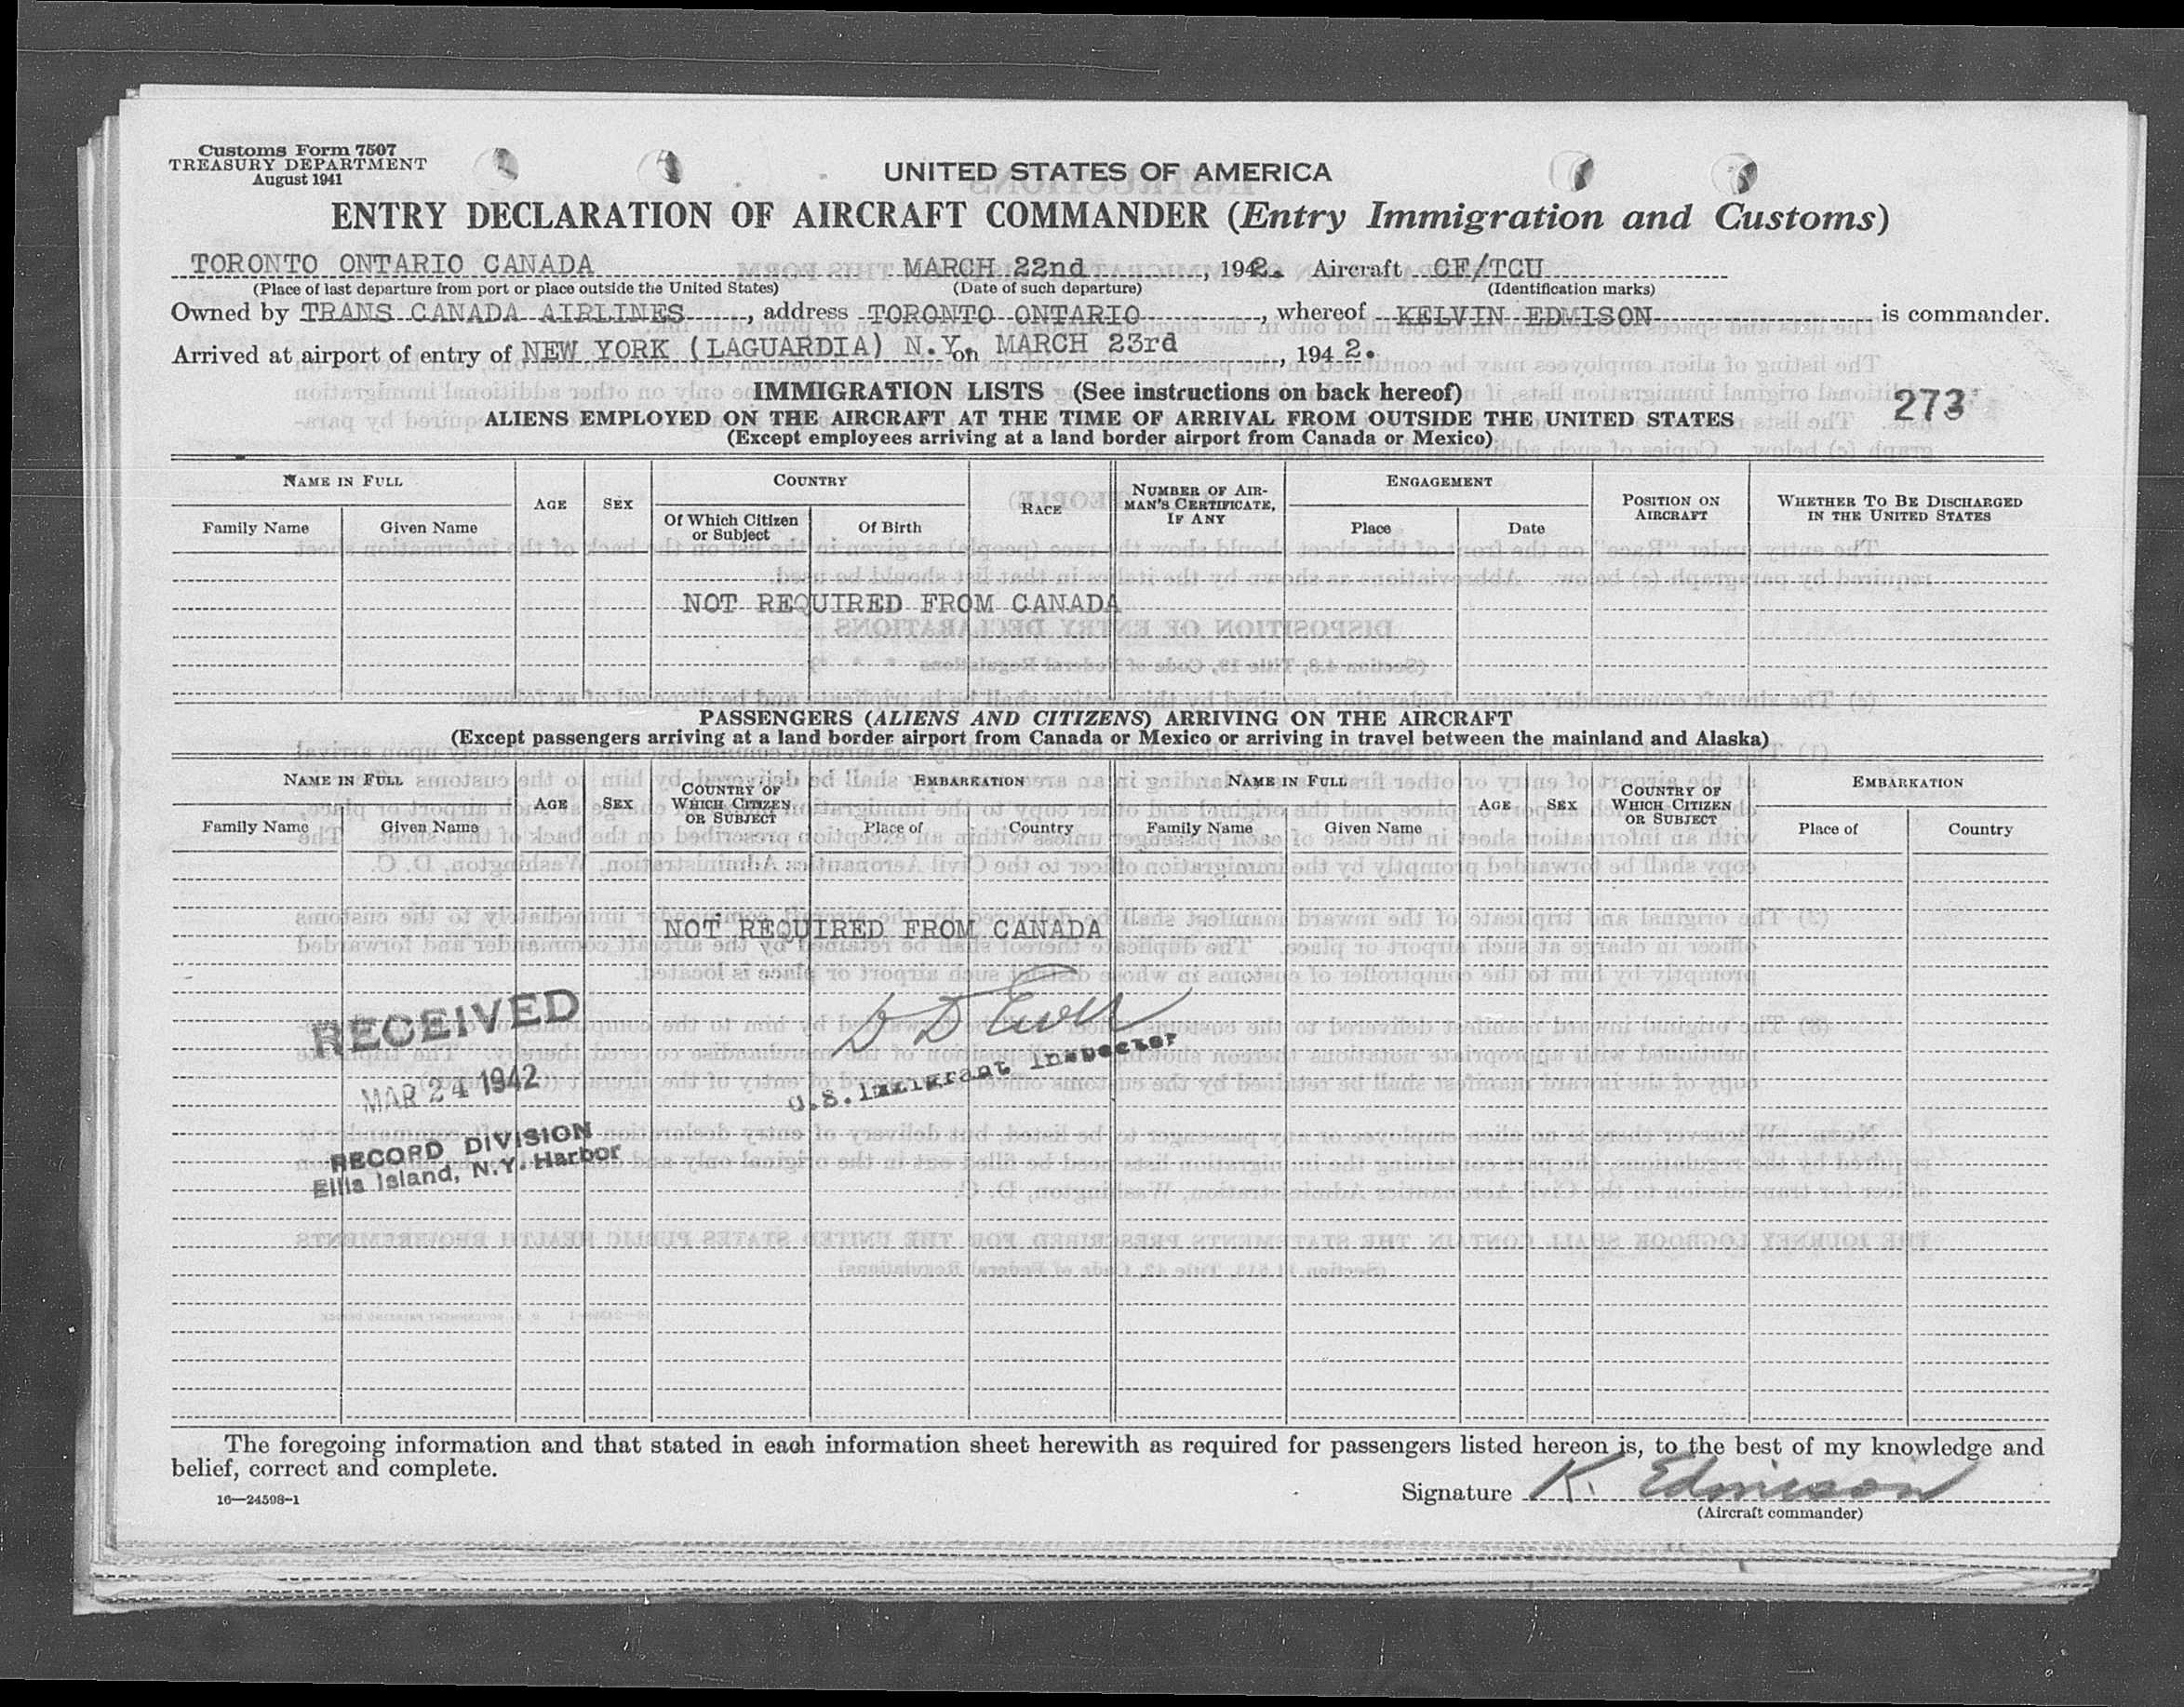 Customs Form 7507
TREASURY DEPARTMENT
August 1941
UNITED STATES OF AMERICA
ENTRY DECLARATION OF AIRCRAFT COMMANDER (Entry Immigration and Customs)
TORONTO ONTARIO CANADA MARCH 22nd, 1942. Aircraft CF/TCU
(Place of last departure from port or place outside the United States) (Date of such departure) (Identification marks)
Owned by TRANS CANADA AIRLINES, address TORONTO ONTARIO, whereof KELVIN EDMISON is commander.
Arrived at airport of entry of NEW YORK (LAGUARDIA) N.Y. on MARCH 23rd, 1942.
IMMIGRATION LISTS (See instructions on back hereof)
273
ALIENS EMPLOYED ON THE AIRCRAFT AT THE TIME OF ARRIVAL FROM OUTSIDE THE UNITED STATES
(Except employees arriving at a land border airport from Canada or Mexico)
NAME IN FULL AGE SEX COUNTRY RACE NUMBER OF AIRMAN'S CERTIFICATE, IF ANY ENGAGEMENT POSITION ON AIRCRAFT WHETHER TO BE DISCHARGED IN THE UNITED STATES
Family Name Given Name Of Which Citizen or Subject Of Birth Place Date
NOT REQUIRED FROM CANADA
PASSENGERS (ALIENS AND CITIZENS) ARRIVING ON THE AIRCRAFT
(Except passengers arriving at a land border airport from Canada or Mexico or arriving in travel between the mainland and Alaska)
NAME IN FULL AGE SEX COUNTRY OF WHICH CITIZEN OR SUBJECT EMBARKATION NAME IN FULL AGE SEX COUNTRY OF WHICH CITIZEN OR SUBJECT EMBARKATION
Family Name Given Name Place of Country Family Name Given Name Place of Country
NOT REQUIRED FROM CANADA
RECEIVED
MAR 24 1942
RECORD DIVISION
Ellis Island, N.Y. Harbor
U.S. Immigrant Inspector
The foregoing information and that stated in each information sheet herewith as required for passengers listed hereon is, to the best of my knowledge and
belief, correct and complete.
Signature K. Edmison
(Aircraft commander)
16—24598-1